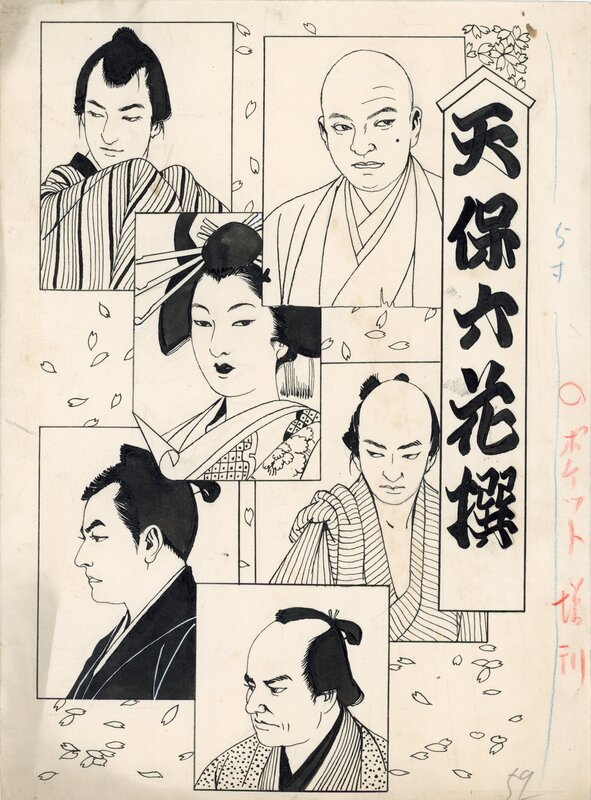 天保六花撰
5寸
○ポケット増刊
59